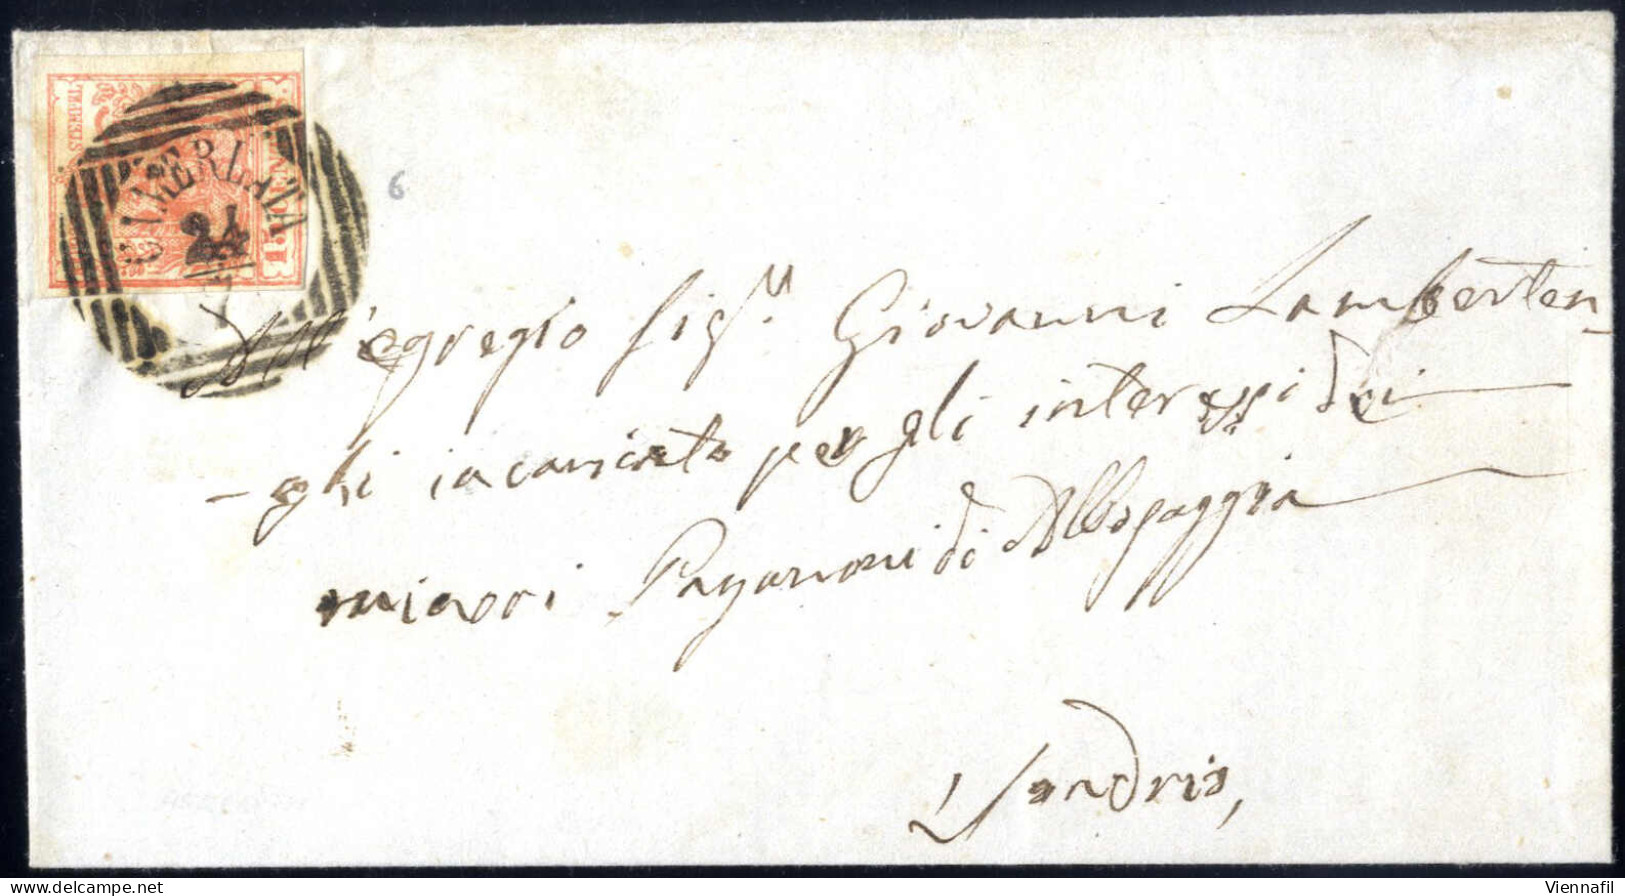 CIMERLATA
24
6
All'egregio Sigr. Giovanni Lamberten-
-ghi incaricato per gli interessi dei
minori Paganoni di Albosaggia
Sondrio,
Viennafil